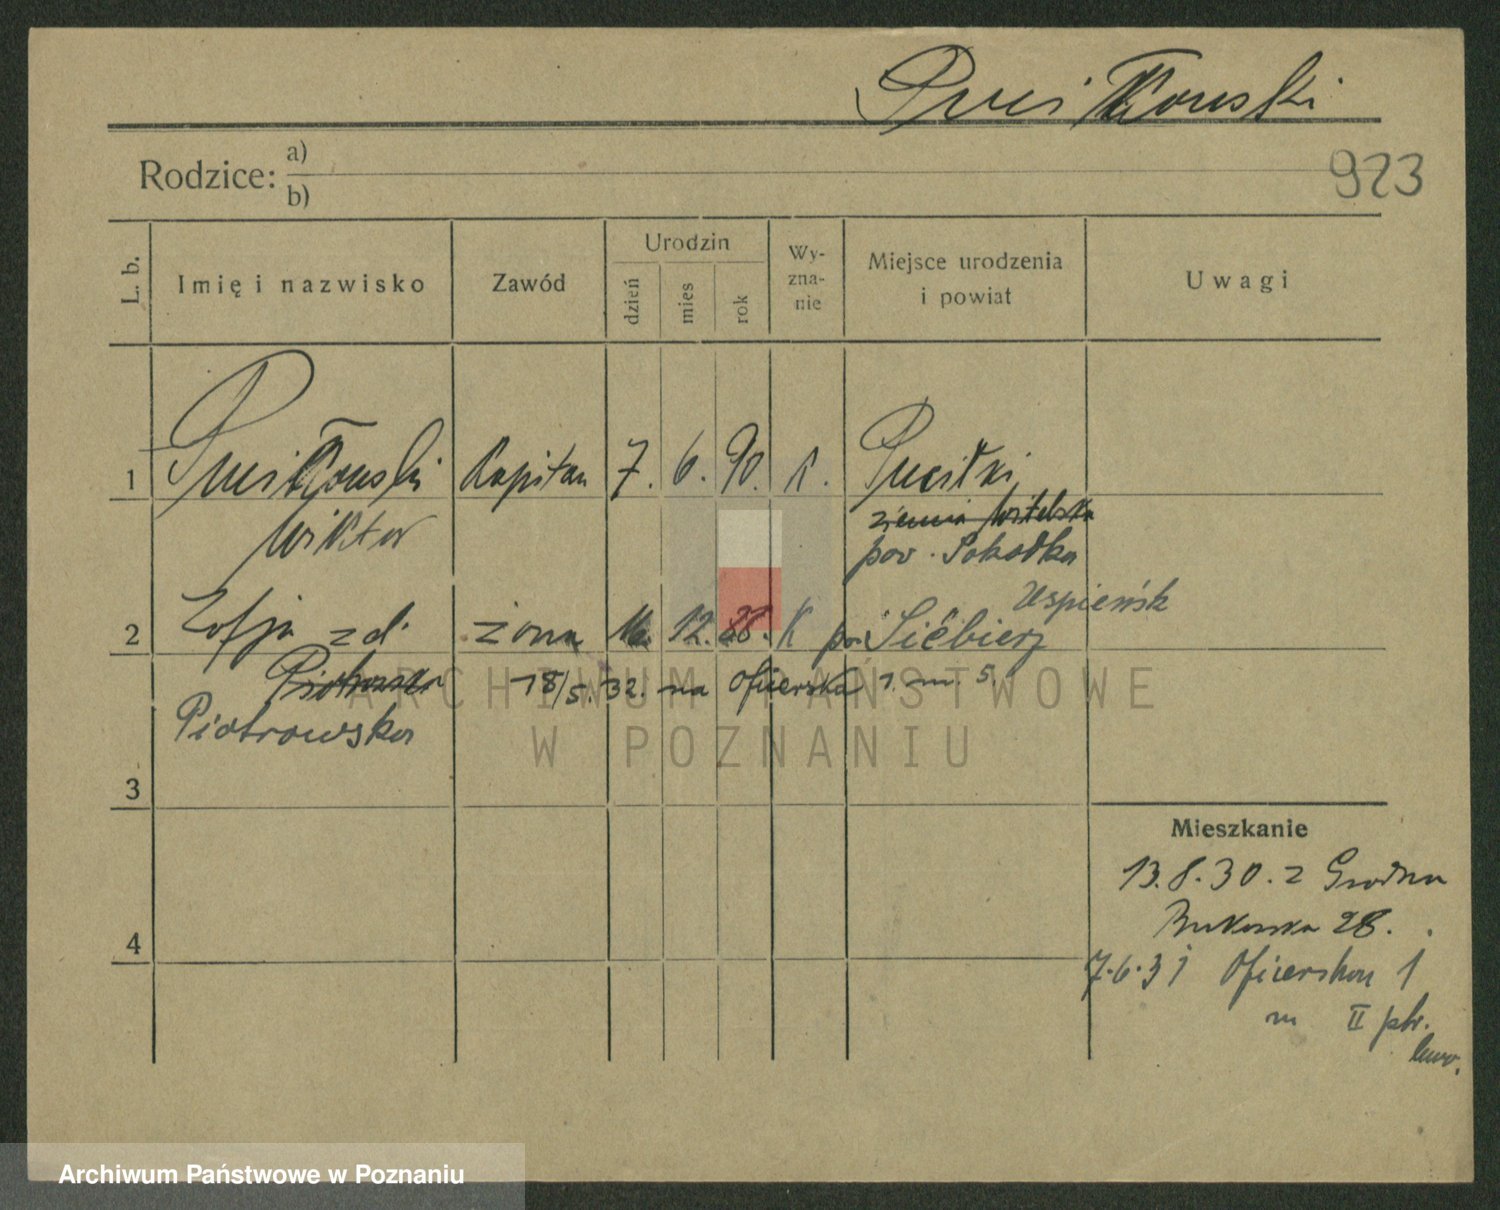 Puciłkowski
923
Rodzice: a)
b)
L. b.
Imię i nazwisko
Zawód
Urodzin
dzień
mies
rok
Wy-
zna-
nie
Miejsce urodzenia
i powiat
Uwagi
1 Puciłkowski Kapitan 7. 6. 90. K. Puciłki
Wiktor
ziemia Witebska
pow. Sokółka
Uspieńsk
2 Zofja z d. żona 16. 12. 88. K
18/5. 32. na Oficerska 1. m. 5.
Piotrowska
3
4
Mieszkanie
13.8.30. z Grodna
Bukowska 28.
7.6.31 Oficerska 1
m II ptr.
lewo.
ARCHIWUM PAŃSTWOWE
W POZNANIU
Archiwum Państwowe w Poznaniu